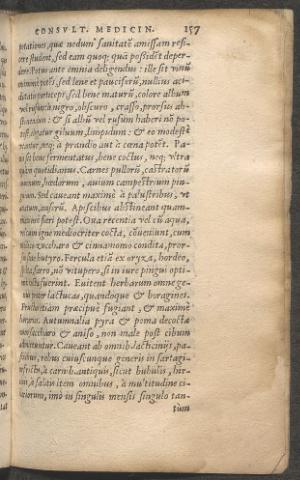 CONSVLT. MEDICIN. 157
potationes, quæ nedum sanitatē amissam refi-
cere student, sed eam quoq; quā possidēt deper-
dere. Potus ante omnia deligendus: ille sit vinū
potēs, sed leue et pauciferū, nullius aci-
particeps, sed bene maturū, colore album
vel rufum: à nigro, obscuro, crasso, prorsus ab-
: & si albū vel rufum haberi nō po-
test, giluum, limpidum: & eo modestè
vtatur, neq; à prandio aut à cœna potēt. Pa-
nis sit bene fermentatus, bene coctus, neq; vltra
quàm quotidianus. Carnes pullorū, castratorū
hœdorum, auium campestrium pin-
guium. Sed caueant maximè à palustribus, vt
anserū. A piscibus abstineant quan-
fieri potest. Oua recentia vel cū aqua,
vel cum igne mediocriter cocta, cōueniunt, cum
zuccharo & cinnamomo condita, pror-
sus sine butyro. Fercula etiā ex oryza, hordeo,
farro, nō vitupero, si in iure pingui opti-
mè cocta fuerint. Euitent herbarum omne ge-
nus præter lactucas, quandoque & boragines.
Fructus etiam præcipuè fugiant, & maximè
horarios. Autumnalia pyra & poma decocta
cum saccharo & aniso, non male post cibum
abutuntur. Caueant ab omnib. lacticinijs, pa-
stibus, rebus cuiuscunque generis in sartagi-
ne frictis, à carnib. antiquis, sicut bubulis, hir-
cinis, à salatis item omnibus, à multitudine ci-
bariorum, imò in singulis mensis singulo tan-
tùm